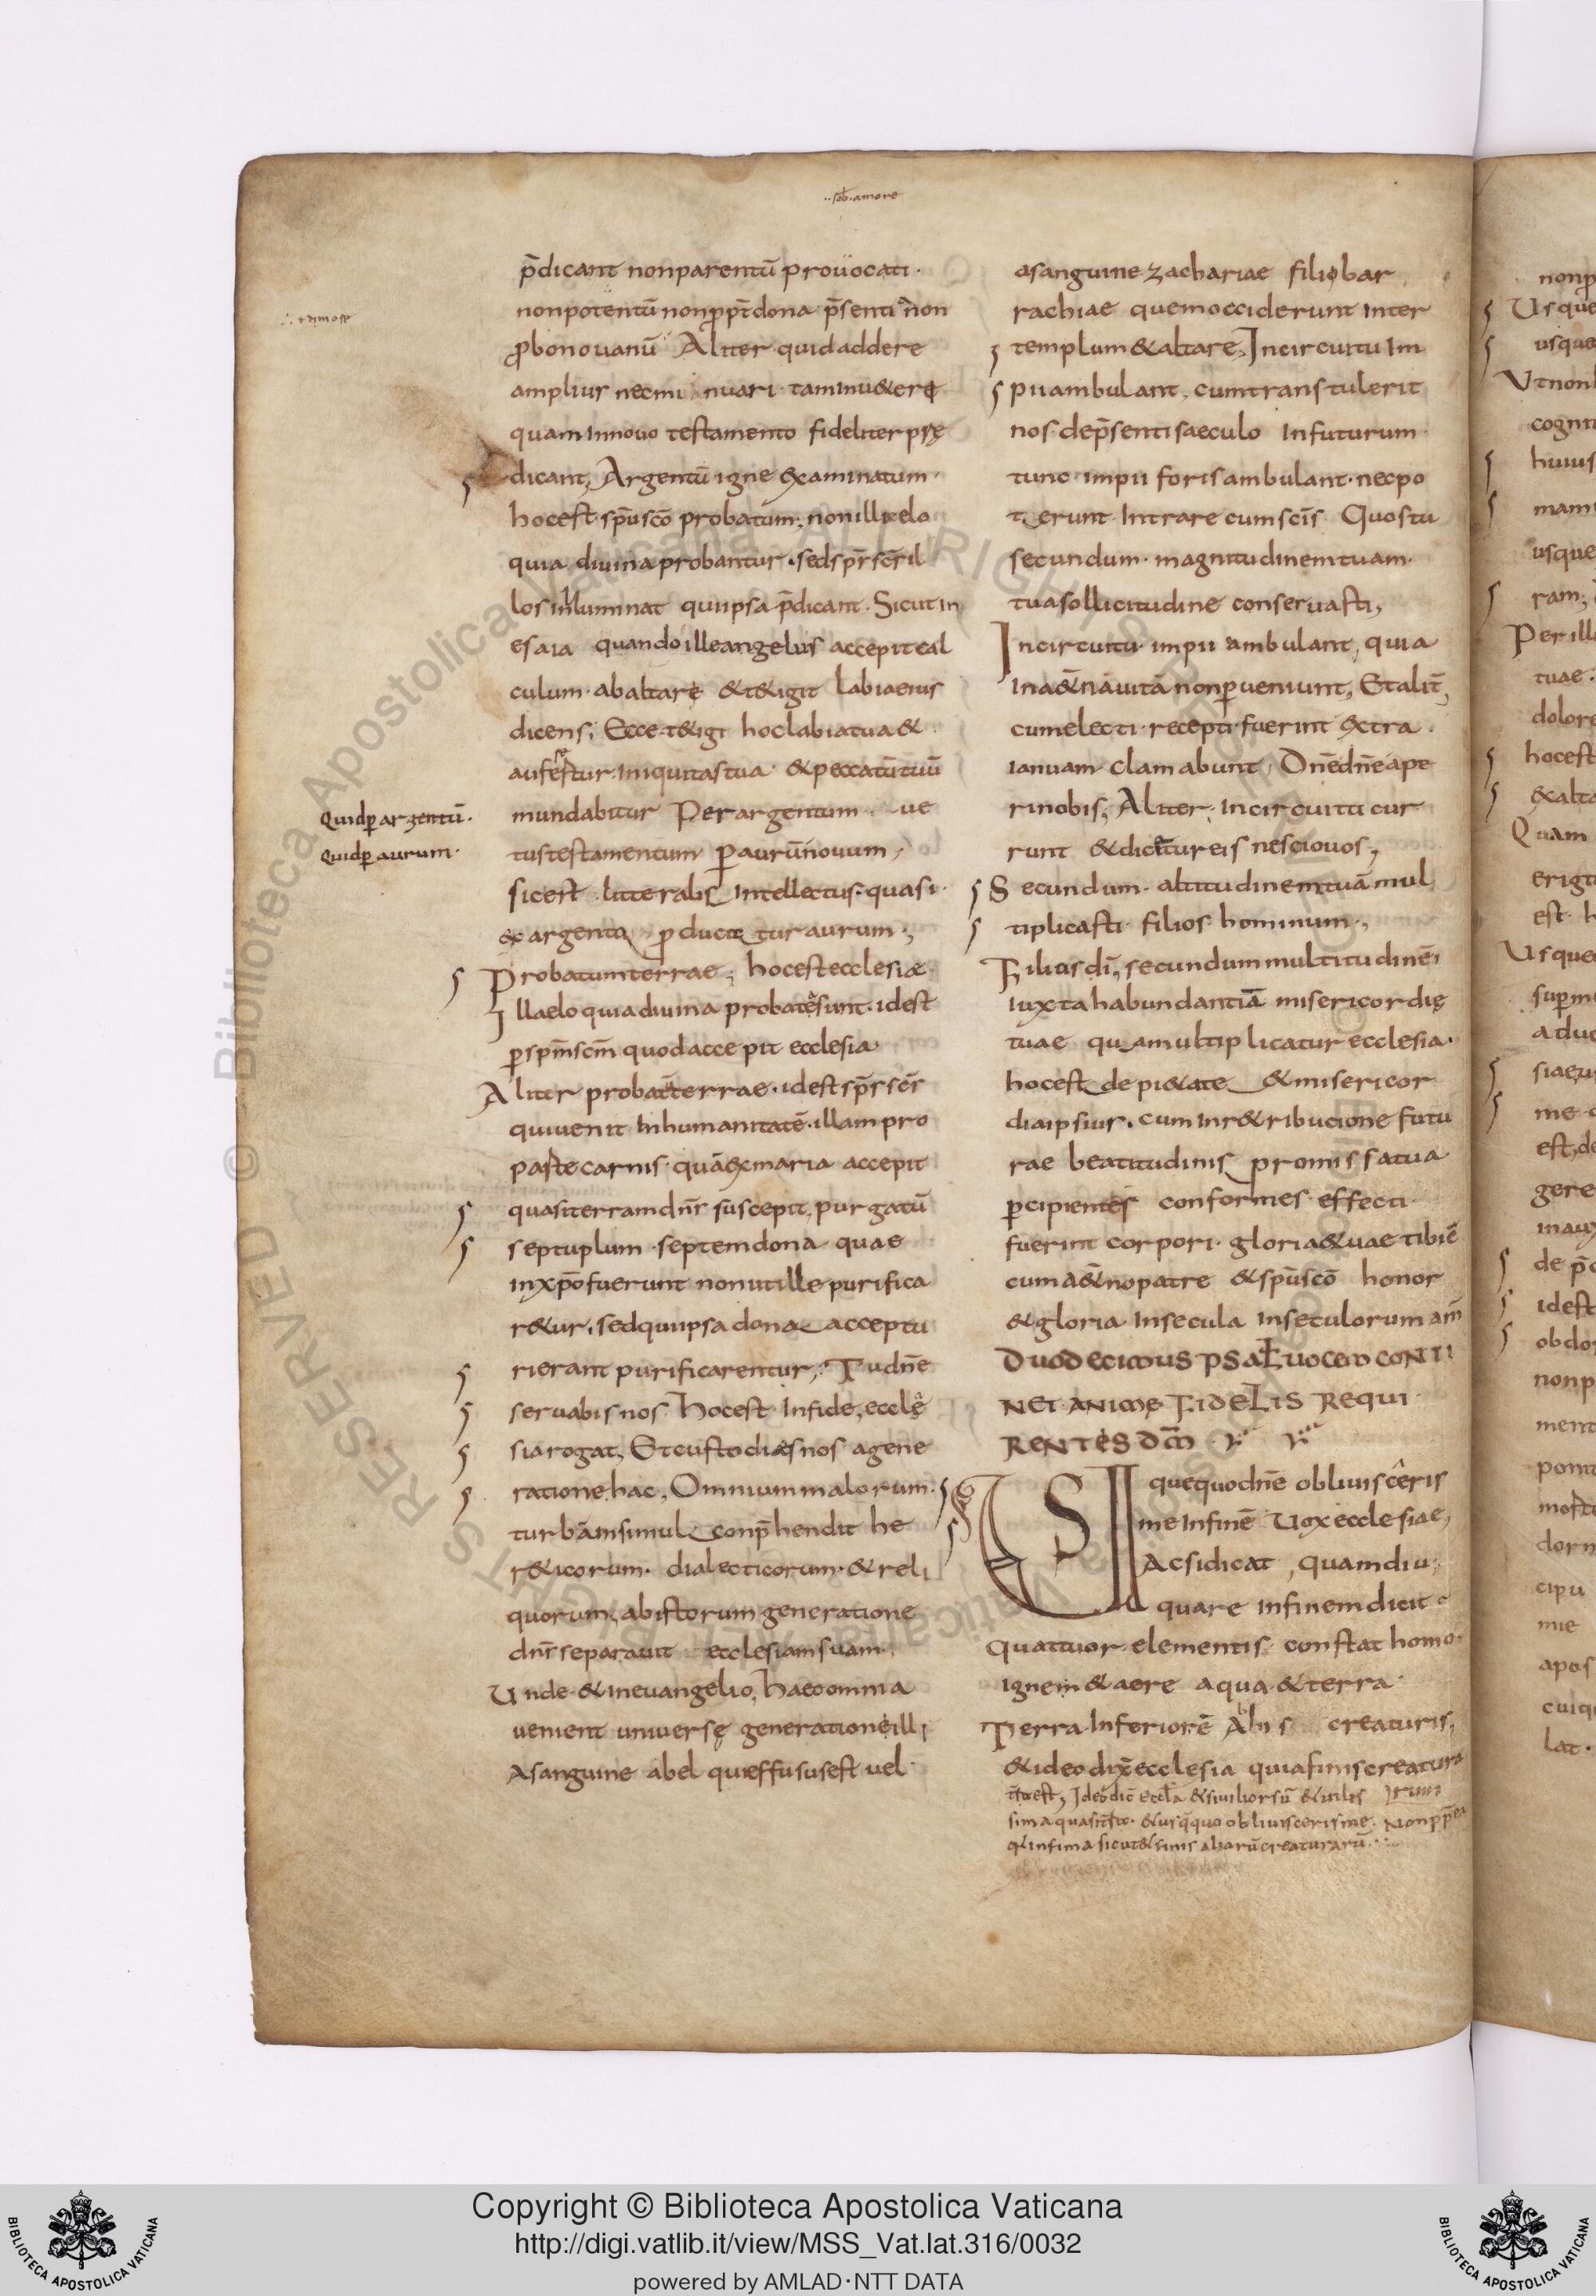 ..scłi.amore
p̄dicant nonparentū prouocati·
nonpotentū nonꝓpt̄ dona p̄senti non
ꝓbonouanū Aliter quidaddere
amplius necmi nuari· taminu&ere
quaminnouo testamento fideliter prę
dicant, Argentū igne examinatum·
hocest·sp̄uscō probatum; nonillaelo
quia diuina probantur·sedsp̄rsc̄ril
losinluminat quiipsa p̄dicant·Sicutin
esaia quandoilleangelus accepitcal
culum·abaltare &t&igit labiaeius
dicens; Ecce·t&igi hoclabiatua&
auferetur·iniquitastua· &peccatūtuū
mundabitur Perargentum ue
tustestamentum ꝑaurūnouum,
sicest·litteralis intellectus·quasi·
ex argento producitur aurum·,
Probatumterrae; hocestecclesiæ·
Illaeloquiadiuina probatasunt·idest
ꝑsp̄msc̄m quodaccepit ecclesia·
Aliter probatterrae·idestsp̄rsc̄r
quiuenit inhumanitatē·illampro
pastecarnis·quāexmaria accepit
quasiterramdn̄r suscepit, purgatū
septuplum·septemdona quae
inxp̄ofuerunt nonutille purifica
r&ur·sedquiipsadona acceptu
rierant purificarentur,·Tudn̄e
seruabisnos·hocest·infide,ecclę
siarogat, Etcustodiesnos agene
rationehac, Omniummalorum·
turbāmsimul conp̄hendit he
r&icorum· dialecticorum·&reli
quorum, abistorum generatione
dn̄rseparauit ecclesiamsuam·
Unde·&ineuangelio, haecomnia
uenient uniuersę generationeilli
Asanguine abel quieffususest uel
Quidꝑargentū·
Quidꝑaurum·
asanguine·zachariae filiobar
rachiae quemocciderunt inter
templum&altare, Incircuitu im
piiambulant, cumtranstulerit
nos·dep̄sentisaeculo infuturum·
tunc·impii forisambulant·necpo
terunt·intrare cumsc̄is Quostu
secundum·magnitudinemtuam·
tuasollicitudine conseruasti,
Incircuitu impii ambulant, quia
ina&n̄auitā nonꝑueniunt, Etalit̄,
cumelecti·recepti·fuerint extra·
ianuam clamabunt, Dn̄edn̄eape
rinobis; Aliter·incircuitu cur
runt &dicetureis nesciouos,
Secundum·altitudinemtuā mul
tiplicasti·filios hominum·,
Filiosdī, secundummultitudinē
iuxtahabundantiā misericordię
tuae quamultiplicatur ecclesia·
hocest depi&ate &misericor
diaipsius· cuminr&ribucione futu
rae beatitudinis promissatua
ꝑcipientes conformes effecti
fuerint corpori·gloria&uae tibiē
cuma&n̄opatre &sp̄uscō honor
&gloria insecula inseculorum am̄
Duodecimus psaƚ uocem conti
net animę fidelis requi
rentes dm̄
Usquequodn̄e obliuiscêris
meinfinē Uoxecclesiae,
Acsidicat, quamdiu,
quare infinemdicit
Quattuor·elementis·constat homo·
ignem&aere aqua&terra·
Terra·inferiorē abhis creaturis,
&ideodix̄ecclesia quiafiniscreatura
rum
Nonpp̄ea
qdinfima sicut&finis aliarūcreaturarū
Copyright © Biblioteca Apostolica Vaticana
http://digi.vatlib.it/view/MSS_Vat.lat.316/0032
powered by AMLAD·NTT DATA
BIBLIOTECA APOSTOLICA VATICANA
BIBLIOTECA APOSTOLICA VATICANA